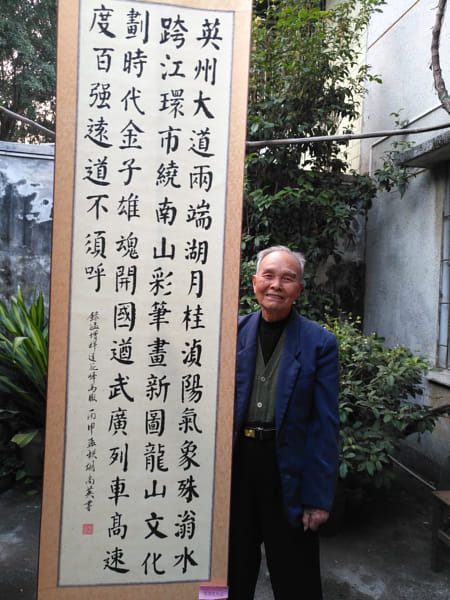 英州大道兩端湖月桂湞陽氣象殊翁水
跨江環市繞南山彩筆畫新圖龍山文化
劃時代金子雄魂開國遒武廣列車髙速
度百强遠道不須呼
丙申孟秋胡南英書